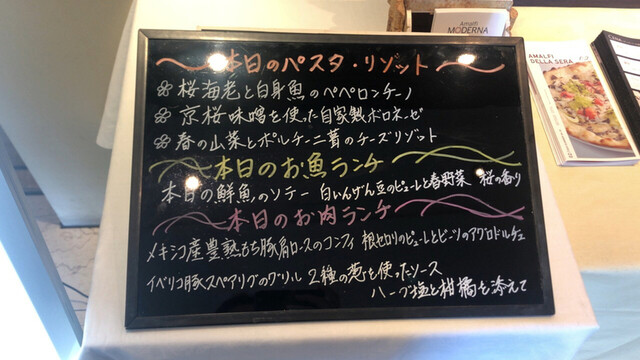 本日のパスタ・リゾット
桜海老と白身魚のペペロンチーノ
京桜味噌を使った自家製ボロネーゼ
春の山菜とポルチーニ茸のチーズリゾット
本日のお魚ランチ
本日の鮮魚のソテー 白いんげん豆のピューレと春野菜 桜の香り
本日のお肉ランチ
メキシコ産豊熟もち豚肩ロースのコンフィ 根セロリのピューレとビーツのアグロドルチェ
イベリコ豚スペアリブのグリル 2種の葱を使ったソース
ハーブ塩と柑橘を添えて
Amalfi
MODERNA
AMALFI
DELLA SERA